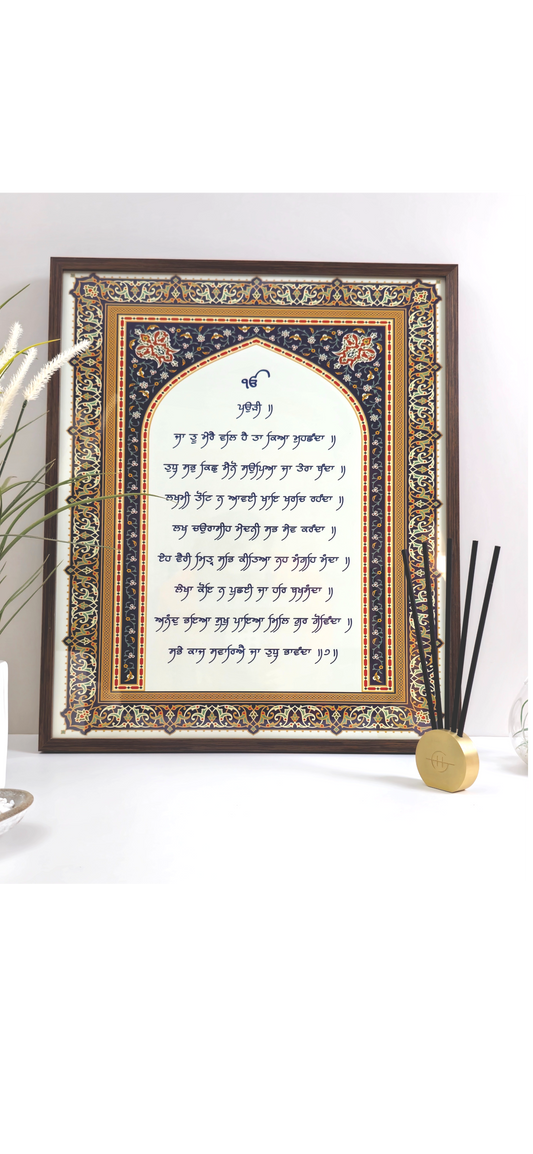 ੴ
ਪਉੜੀ ॥
ਜਾ ਤੂ ਮੇਰੈ ਵਲਿ ਹੈ ਤਾ ਕਿਆ ਮੁਹਛੰਦਾ ॥
ਤੁਧੁ ਸਭੁ ਕਿਛੁ ਮੈਨੋ ਸਉਪਿਆ ਜਾ ਤੇਰਾ ਬੰਦਾ ॥
ਲਖਮੀ ਤੋਟਿ ਨ ਆਵਈ ਖਾਇ ਖਰਚਿ ਰਹੰਦਾ ॥
ਲਖ ਚਉਰਾਸੀਹ ਮੇਦਨੀ ਸਭ ਸੇਵ ਕਰੰਦਾ ॥
ਏਹ ਵੈਰੀ ਮਿਤ੍ਰ ਸਭਿ ਕੀਤਿਆ ਨਹ ਮੰਗਹਿ ਮੰਦਾ ॥
ਲੇਖਾ ਕੋਇ ਨ ਪੁਛਈ ਜਾ ਹਰਿ ਬਖਸੰਦਾ ॥
ਅਨੰਦੁ ਭਇਆ ਸੁਖੁ ਪਾਇਆ ਮਿਲਿ ਗੁਰ ਗੋਵਿੰਦਾ ॥
ਸਭੇ ਕਾਜ ਸਵਾਰਿਐ ਜਾ ਤੁਧੁ ਭਾਵੰਦਾ ॥੭॥